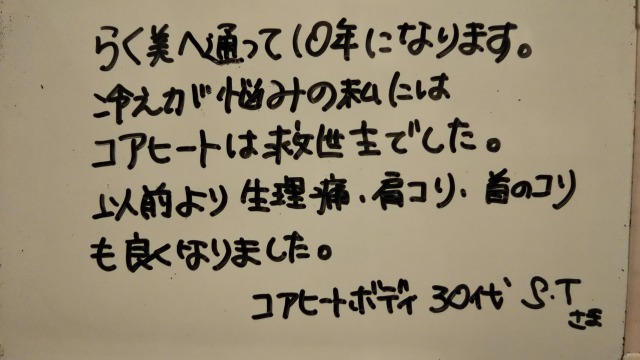 らく美へ通って10年になります。
冷えが悩みの私には
コアヒートは救世主でした。
以前より生理痛、肩コリ、首のコリ
も良くなりました。
コアヒートボディ 30代 S.T
さま